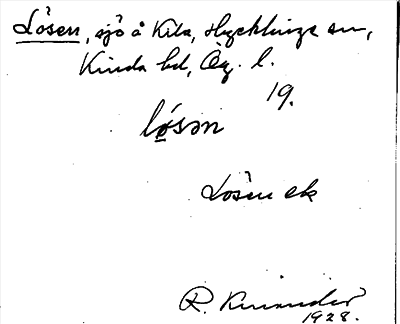 Lösen, sjö å Kila, Hycklinge sn,
Kinda hd, Ög. l.
19.
lo̤sən
Lösen ek
R. Kinander
1928.